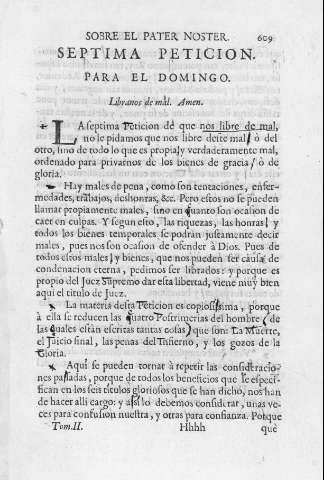 SOBRE EL PATER NOSTER. 609
SEPTIMA PETICION.
PARA EL DOMINGO.
Libranos de mal. Amen.
LA septima Peticion dé que nos libre de mal,
no le pidamos que nos libre deste mal, ò del
otro, sino de todo lo que es propia, y verdaderamente mal,
ordenado para privarnos de los bienes de gracia, ò de
gloria.
Hay males de pena, como son tentaciones, enfer-
medades, trabajos, deshonras, &c. Pero estos no se pueden
llamar propiamente males, sino en quanto son ocasion de
caer en culpas. Y segun esto, las riquezas, las honras, y
todos los bienes temporales se podràn justamente decir
males, pues nos son ocasion de ofender à Dios. Pues de
todos estos males, y bienes, que nos pueden ser causa de
condenacion eterna, pedimos ser librados: y porque es
propio del Juez Supremo dar esta libertad, viene muy bien
aqui el titulo de Juez.
La materia desta Peticion es copiosissima, porque
à ella se reducen las quatro Postrimerias del hombre, de
las quales estàn escritas tantas cosas, que son: La Muerte,
el Juicio final, las penas del Infierno, y los gozos de la
Gloria.
Aqui se pueden tornar à repetir las consideracio-
nes passadas, porque de todos los beneficios que se especi-
fican en los seis titulos gloriosos que se han dicho, nos han
de hacer alli cargo: y assi lo debemos considerar, unas ve-
ces para confusion nuestra, y otras para confianza. Porque
Tom. II. Hhhh què